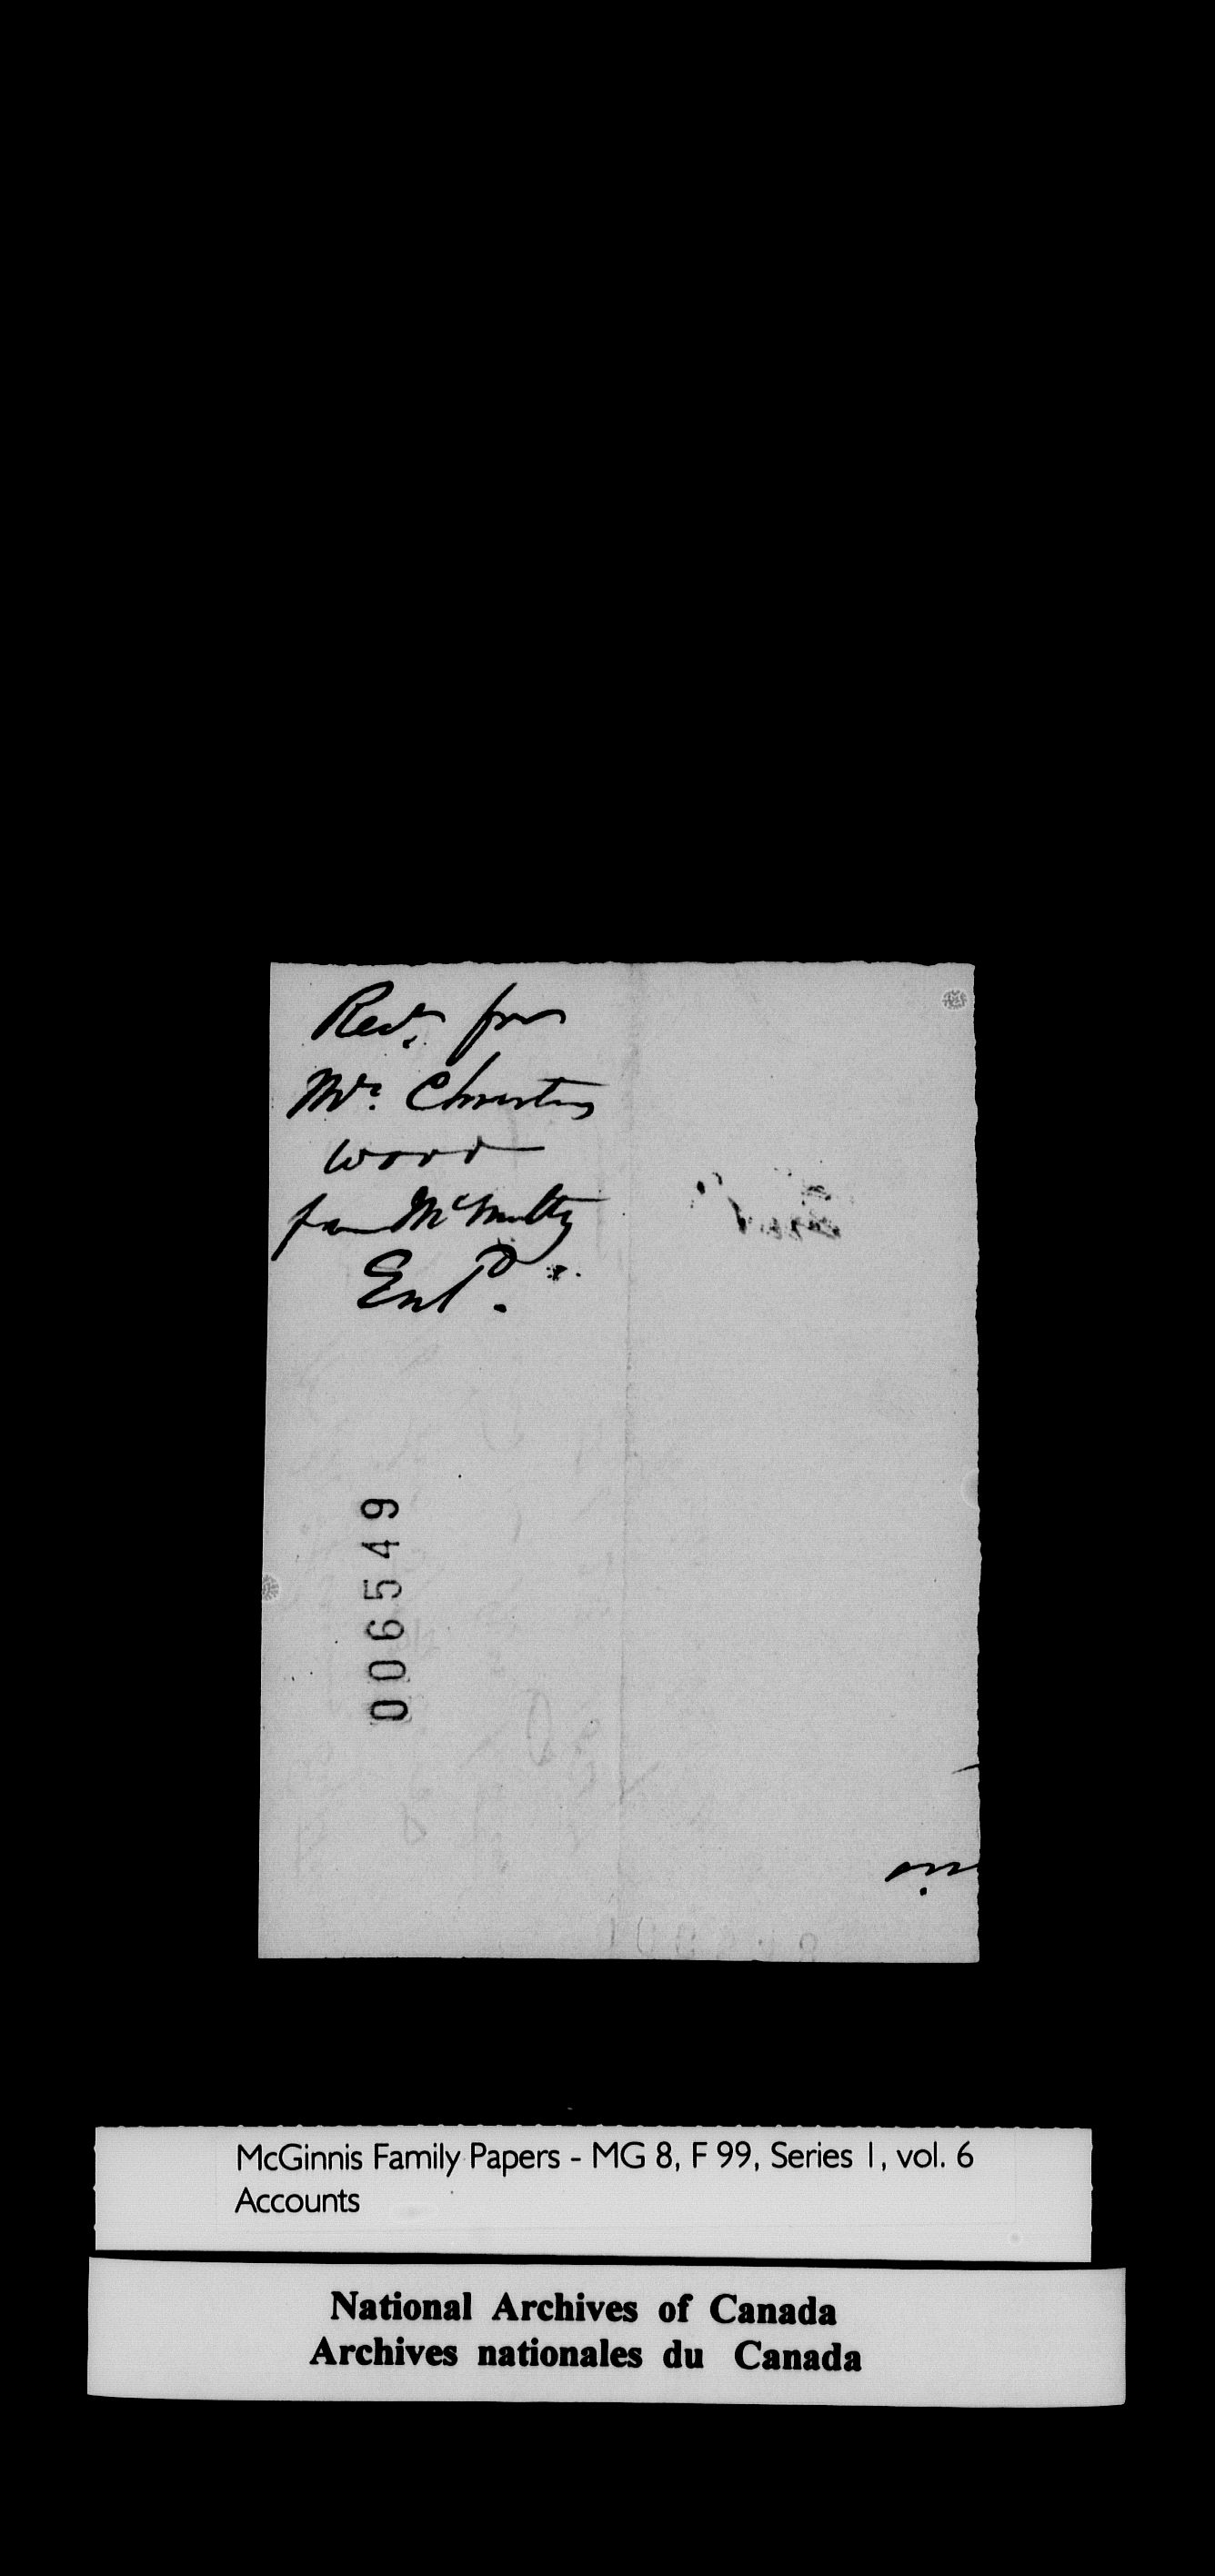 Recd. for
Mr. Christies
wood
from McNulty
Entd.
006549
McGinnis Family Papers - MG 8, F 99, Series 1, vol. 6
Accounts
National Archives of Canada
Archives nationales du Canada